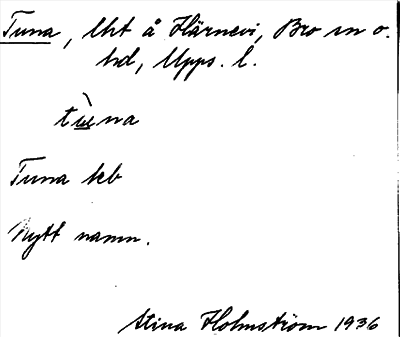 Tuna, lht å Härnevi, Bro sn o.
hd, Upps. l.
tùna
Tuna ktb
Nytt namn.
Stina Holmström 1936